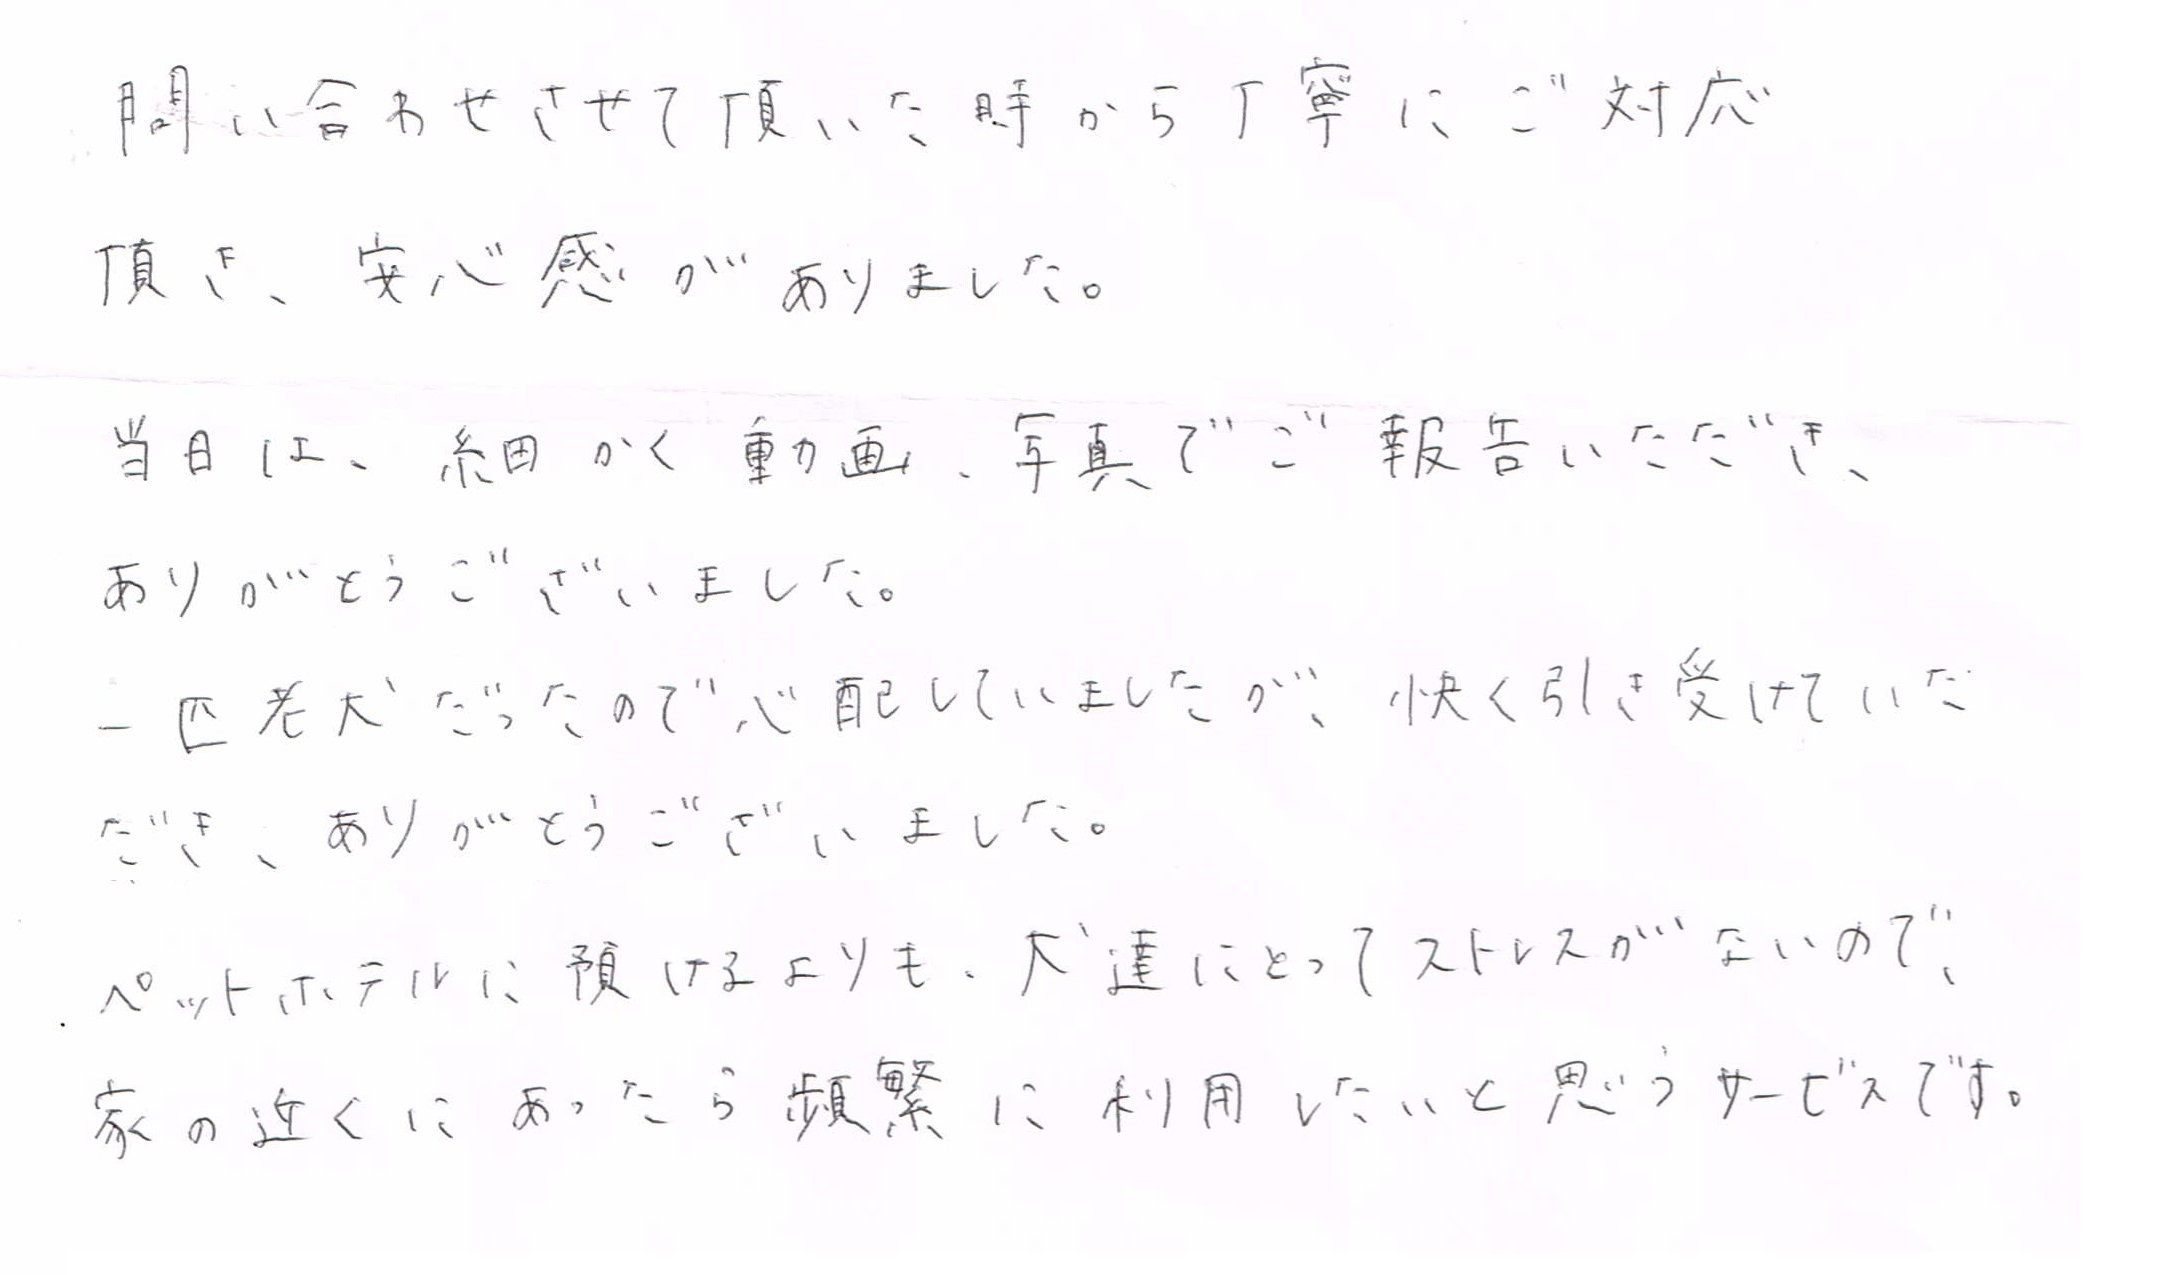 問い合わせさせて頂いた時から丁寧にご対応
頂き、安心感がありました。
当日は、細かく動画、写真でご報告いただき、
ありがとうございました。
一匹老犬だったので心配していましたが、快く引き受けていた
だき、ありがとうございました。
ペットホテルに預けるよりも、犬達にとってストレスがないので、
家の近くにあったら頻繁に利用したいと思うサービスです。